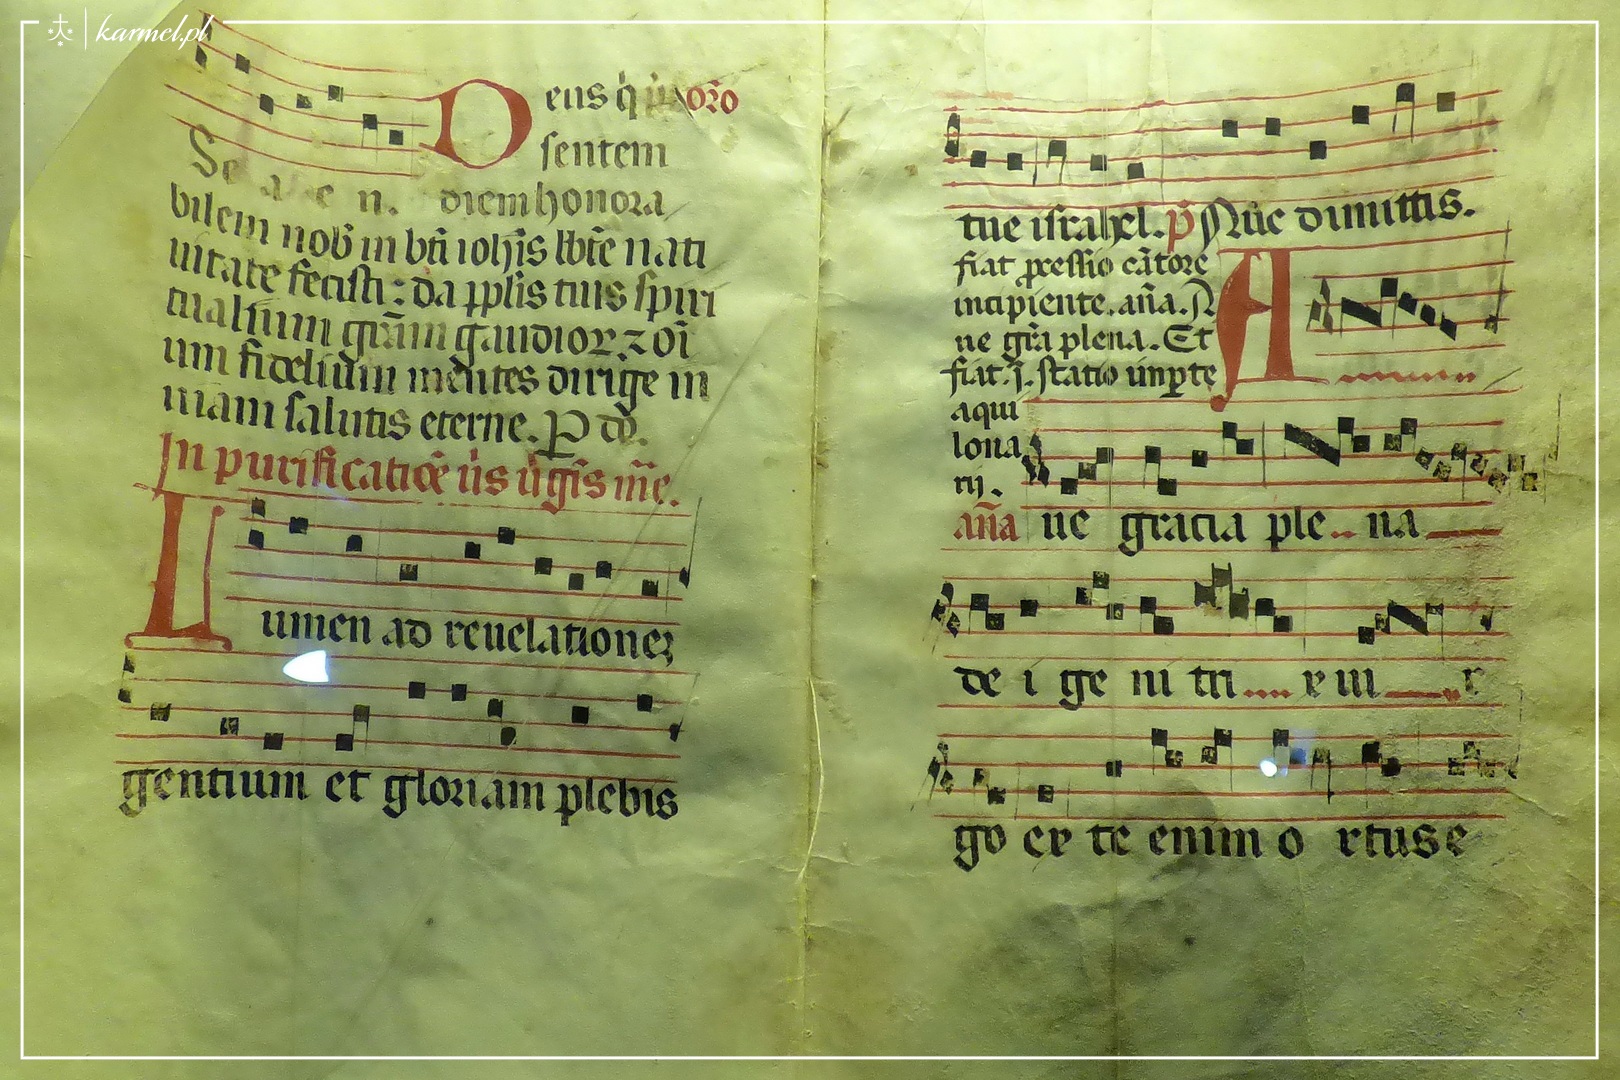 karmel.pl
Deus q̇ p oro᷈
sentem
Se
diem honora
bilem nob̄ in bt̄i ioh̄is bt̄e nati
uitate fecisti: da pplis tuis spiri
tualium gr̄am gaudioꝝ ⁊ oī
um fidelium mentes dirige in
uiam salutis eterne. P do᷈.
In purificatiōe ūs ūgīs m̄e.
Lumen ad reuelationeꝫ
gentium et gloriam plebis
tue israhel. p̄ Nūc dimittis.
fiat ꝓcessio cātore
incipiente. an̄a. A
ue gr̄a plena. Et
fiat .j. statio in ꝑte
aqui
lona
rij.
an̄a Aue gracia ple na
de i ge ni tri x uir
go ex te enim o rtus e